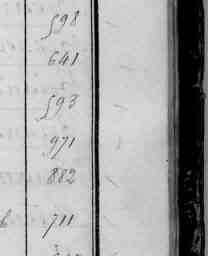 598
641
593
971
882
711